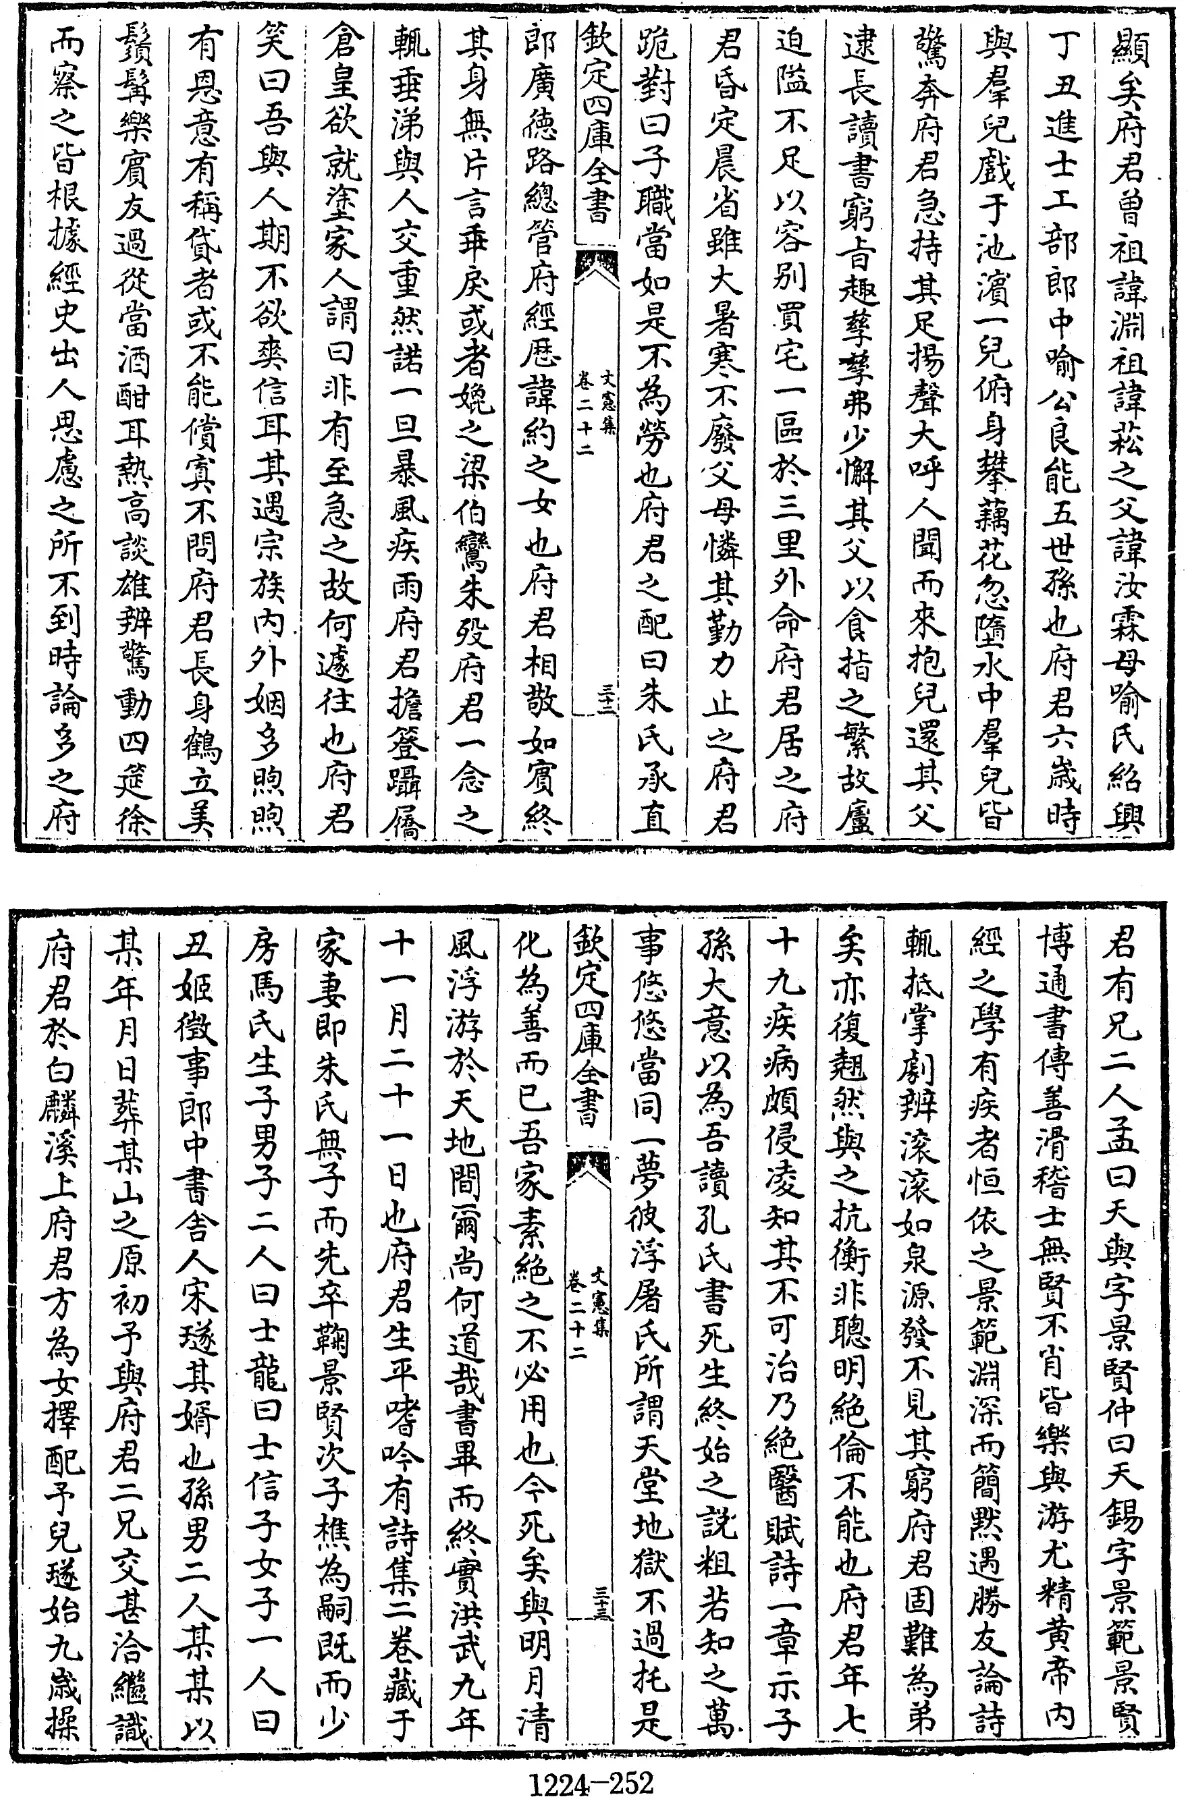 顯矣府君曾祖諱淵祖諱菘之父諱汝霖母喻氏紹興
丁丑進士工部郎中喻公良能五世孫也府君六歲時
與羣兒戲于池濱一兒俯身攀藕花忽墮水中羣兒皆
驚奔府君急持其足揚聲大呼人聞而來抱兒還其父
逮長讀書窮旨趣孳孳弗少懈其父以食指之繁故廬
迫隘不足以容別買宅一區於三里外命府君居之府
君昏定晨省雖大暑寒不廢父母憐其勤力止之府君
跪對曰子職當如是不為勞也府君之配曰朱氏承直
欽定四庫全書
文憲集
卷二十二
三十二
郎廣徳路總管府經厯諱約之女也府君相敬如賓終
其身無片言乖戾或者媲之梁伯鸞朱歿府君一念之
輒垂涕與人交重然諾一旦暴風疾雨府君擔簦躡屩
倉皇欲就塗家人謂曰非有至急之故何遽往也府君
笑曰吾與人期不欲爽信耳其遇宗族内外姻多煦煦
有恩意有稱貸者或不能償寘不問府君長身鶴立美
鬚髯樂賓友過從當酒酣耳熱高談雄辨驚動四筵徐
而察之皆根據經史出人思慮之所不到時論多之府
君有兄二人孟曰天與字景賢仲曰天錫字景範景賢
博通書傳善滑稽士無賢不肖皆樂與游尤精黄帝内
經之學有疾者恒依之景範淵深而簡黙遇勝友論詩
輒抵掌劇辨滚滚如泉源發不見其窮府君固難為弟
矣亦復翹然與之抗衡非聰明絶倫不能也府君年七
十九疾病頗侵凌知其不可治乃絶醫賦詩一章示子
孫大意以為吾讀孔氏書死生終始之説粗若知之萬
事悠悠當同一夢彼浮屠氏所謂天堂地獄不過托是
欽定四庫全書
文憲集
卷二十二
三十三
化為善而已吾家素絶之不必用也今死矣與明月清
風浮游於天地間爾尚何道哉書畢而終實洪武九年
十一月二十一日也府君生平嗜吟有詩集二卷藏于
家妻即朱氏無子而先卒鞠景賢次子樵為嗣既而少
房馬氏生子男子二人曰士龍曰士信子女子一人曰
丑姬徴事郎中書舍人宋璲其婿也孫男二人某某以
某年月日葬某山之原初予與府君二兄交甚洽繼識
府君於白麟溪上府君方為女擇配予兒璲始九歲操
1224-252